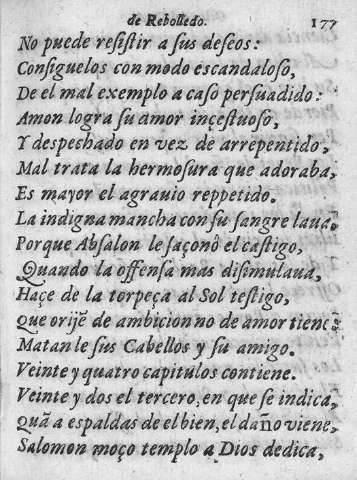 de Rebolledo. 177
No puede reſiſtir a ſus deſeos:
Conſiguelos con modo eſcandaloſo,
De el mal exemplo a caſo perſuadido:
Amon logra ſu amor inceſtuoſo,
Y deſpechado en vez de arrepentido,
Mal trata la hermoſura que adoraba,
Es mayor el agrauio reppetido.
La indigna mancha con ſu ſangre laua.
Porque Abſalon le ſaçonò el caſtigo,
Quando la offenſa mas diſimulaua,
Haçe de la torpeça al Sol teſtigo,
Que orijẽ de ambicion no de amor tiene:
Matan le ſus Cabellos y ſu amigo.
Veinte y quatro capitulos contiene.
Veinte y dos el tercero, en que ſe indica,
Quã a eſpaldas de el bien, el daño viene,
Salomon moço templo a Dios dedica,